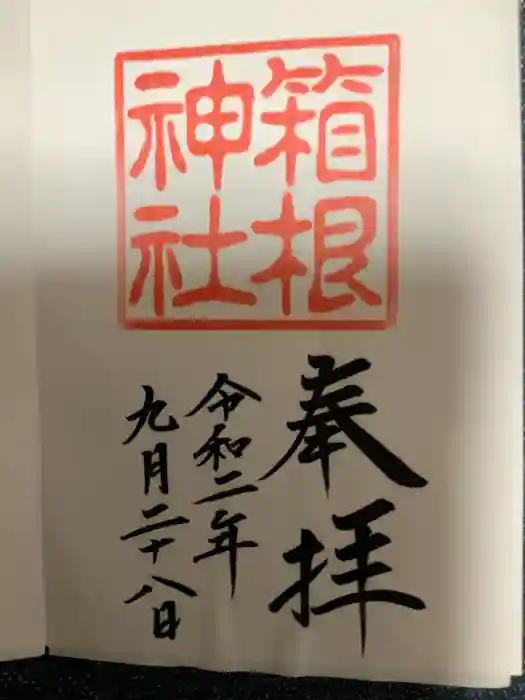 箱根
神社
奉拝
令和二年
九月二十八日